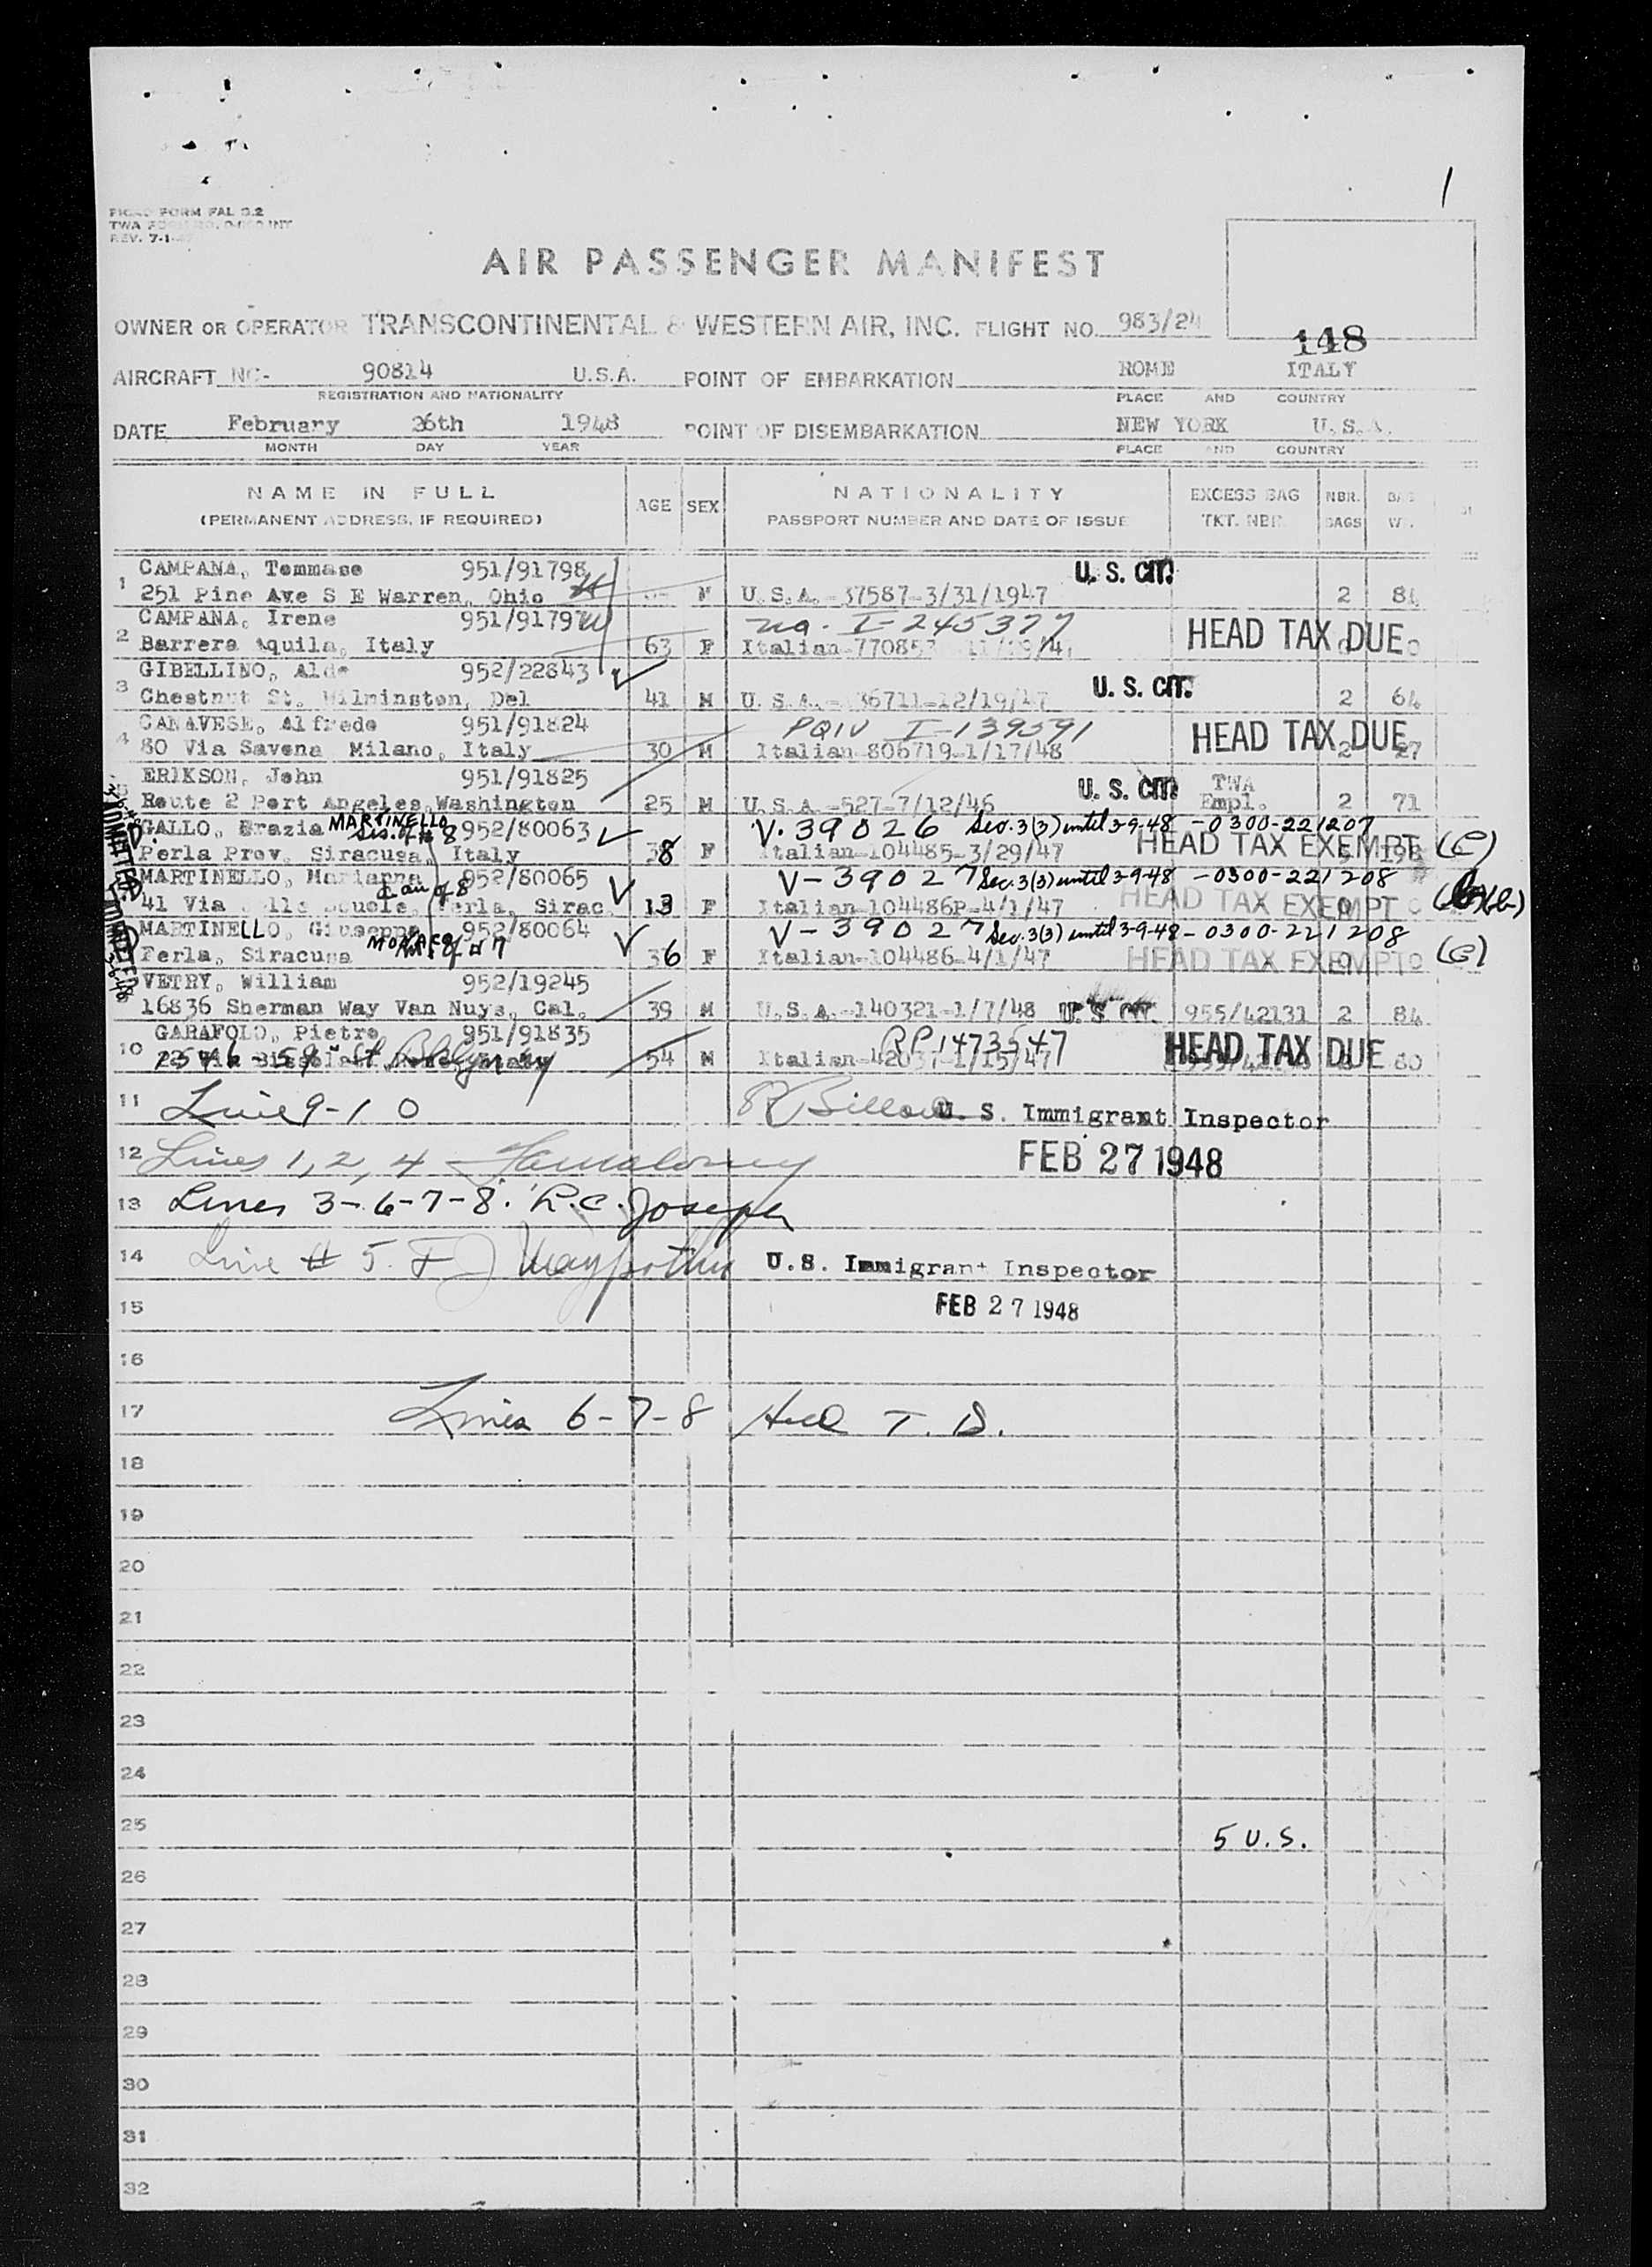 1
TWA
REV. 7-1-
AIR PASSENGER MANIFEST
OWNER OR OPERATOR TRANSCONTINENTAL & WESTERN AIR, INC. FLIGHT NO. 983/24
148
AIRCRAFT NC- 90814 U.S.A. POINT OF EMBARKATION ROME ITALY
REGISTRATION AND NATIONALITY PLACE AND COUNTRY
DATE February 26th 1948 POINT OF DISEMBARKATION NEW YORK U.S.A.
MONTH DAY YEAR PLACE AND COUNTRY
NAME IN FULL AGE SEX NATIONALITY EXCESS BAG NBR.
(PERMANENT ADDRESS, IF REQUIRED) PASSPORT NUMBER AND DATE OF ISSUE TKT. NBR. BAGS
CAMPANA, Tommaso 951/91798 U.S. CIT.
1 251 Pine Ave S E Warren, Ohio M U.S.A.-37587-3/31/1947 2
CAMPANA, Irene 951/91797 I-245377
2 Barrera Aquila, Italy 63 F Italian HEAD TAX DUE
GIBELLINO, Aldo 952/22843 U.S. CIT.
3 Chestnut St. Wilminston, Del 41 M U.S.A.-36711-12/19/47 2 64
CANAVESE, Alfredo 951/91824 PQIV I-139591
4 80 Via Savona Milano, Italy 30 M Italian-806719-1/17/48 HEAD TAX DUE 2 27
ERIKSON, John 951/91825 U.S. CIT TWA
Route 2 Port Angeles, Washington 25 M U.S.A.-527-7/12/46 Empl. 2 71
GALLO, Grazia MARTINELLO Sis. of # 8 952/80063 V. 39026 Sec. 3(3) until 3-9-48 -0300-221207
Perla Prov. Siracusa, Italy 38 F Italian-104485-3/29/47 HEAD TAX EXEMPT (C)
MARTINELLO, Marianna dau of 8 952/80065 V-39027 Sec. 3(3) until 3-9-48 -0300-221208
41 Via Perla, Sirac. 13 F Italian-104486P-4/1/47 HEAD TAX EXEMPT
MARTINELLO, Giuseppa 952/80064 V-39027 Sec. 3(3) until 3-9-48 -0300-221208
Perla, Siracusa Mother of # 7 36 F Italian-104486-4/1/47 HEAD TAX EXEMPT (C)
VETRY, William 952/19245
16836 Sherman Way Van Nuys, Cal. 39 M U.S.A.-140321-1/7/48 U.S. CIT. 955/42131 2 84
GARAFOLO, Pietro 951/91835 RP 1473547
10 54 M Italian-42037-1/15/47 HEAD TAX DUE 80
11 Line 9-10 U. S. Immigrant Inspector
12 Lines 1, 2, 4 FEB 27 1948
13 Lines 3-6-7-8. R.C. Joseph
14 Line # 5. U.S. Immigrant Inspector
15 FEB 27 1948
16
17 Lines 6-7-8 Held T. D.
18
19
20
21
22
23
24
25 5 U.S.
26
27
28
29
30
31
32